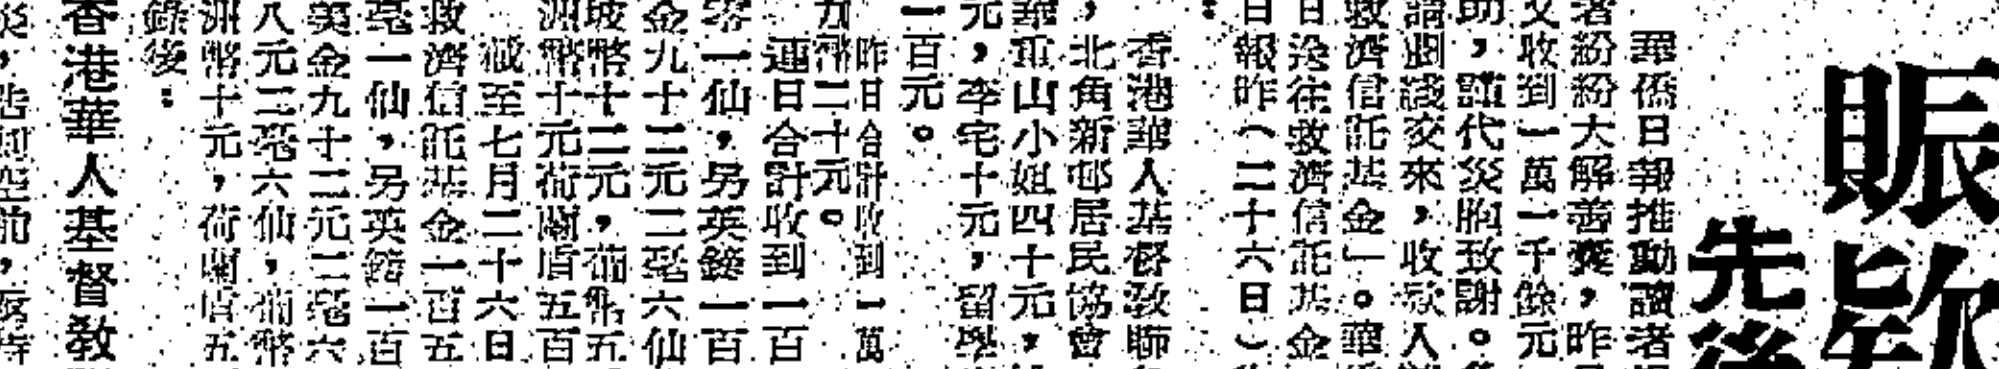 賑欵
先後
華僑日報推動讀者
者紛紛大解善囊，昨
又收到一萬一千餘元
助，謹代災胞致謝。
請剴錢交來，收欵人
救濟信託基金」。華
日送往救濟信託基金
日報昨（二十六日）
：
香港華人基督敎聯
，北角新邨居民協會
華重山小姐四十元，
元，李宅十元，留學
一百元。
昨日合計收到一萬
九幣二十元。
連日合計收到一百
零一仙，另英鎊一百
金九十二元二毫六仙
坡幣十二元，葡幣五
洲幣十元荷蘭盾五百
截至七月二十六日
救濟信託基金一百五
毫一仙，另英鎊一百
美金九十二元二毫六
八元二毫六仙，葡幣
洲幣十元，荷蘭盾五
錄後：
香港華人基督敎